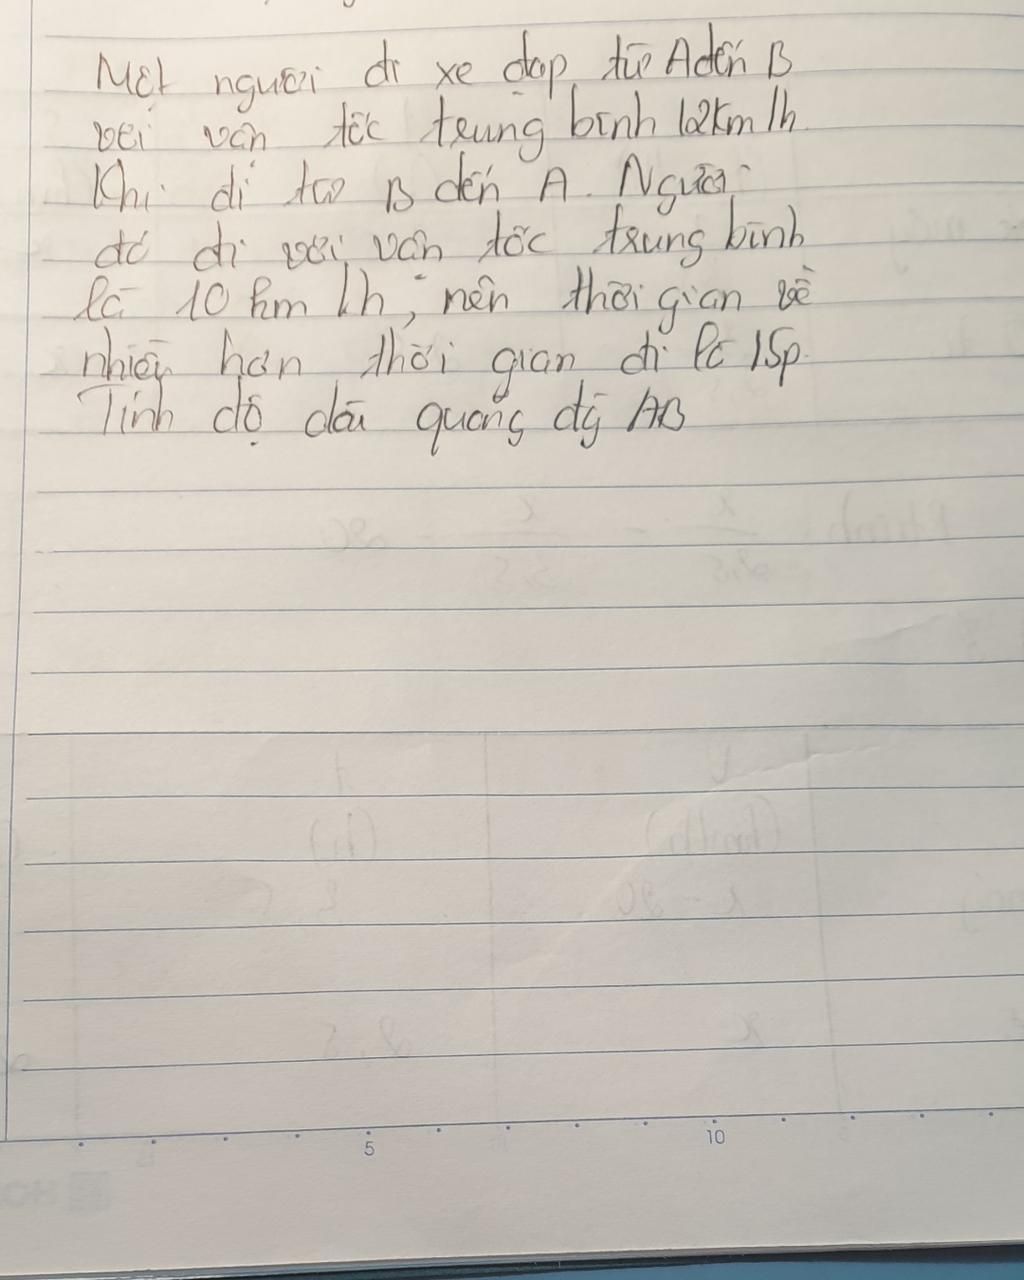 Một người đi xe đạp từ A đến B
với vận tốc trung bình 12km/h
Khi đi từ B đến A. Người
đó đi với vận tốc trung bình
là 10 km/h, nên thời gian về
nhiều hơn thời gian đi là 15p.
Tính độ dài quãng đg AB
5 10